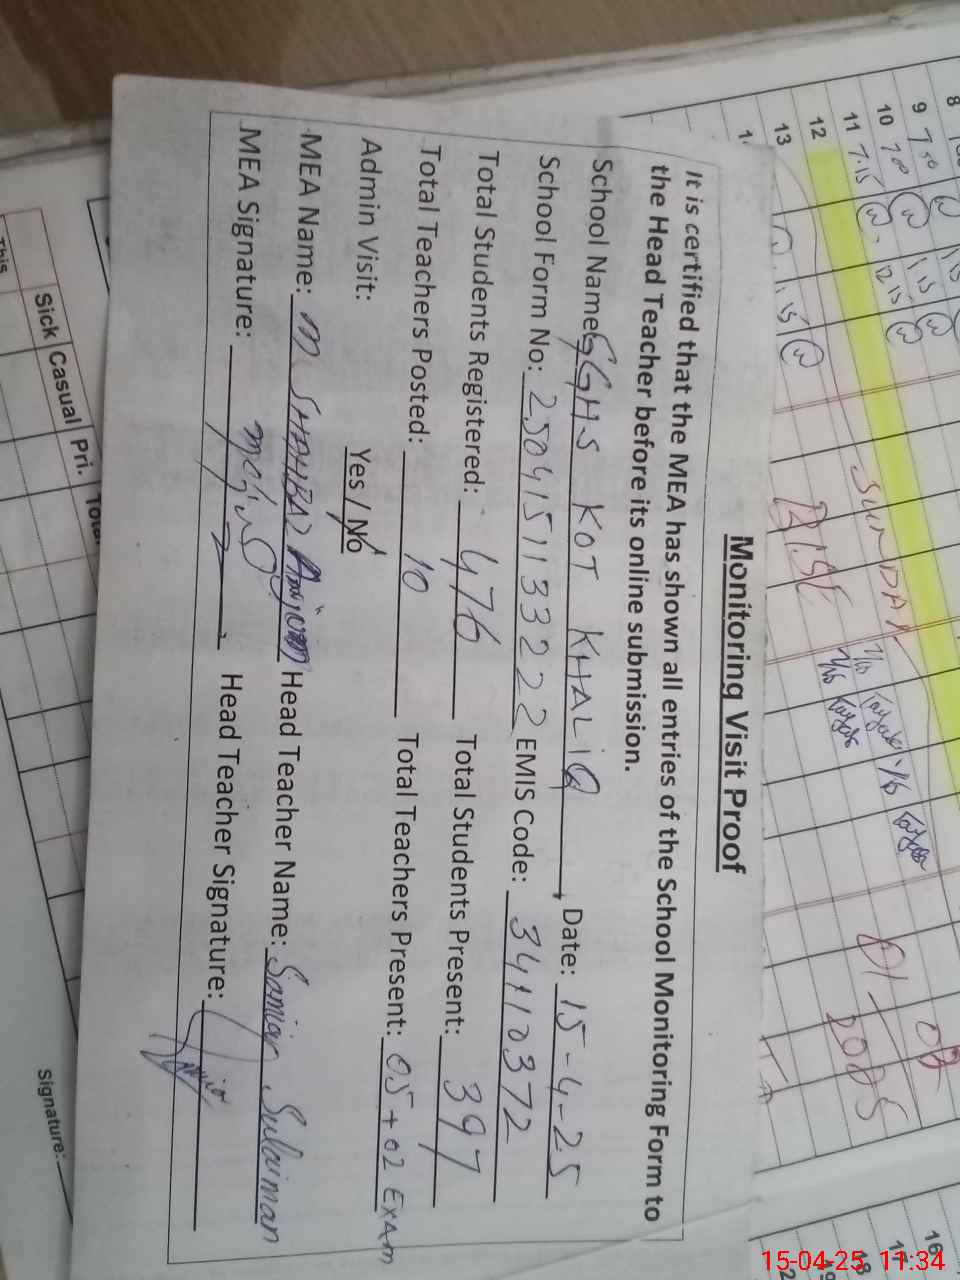 Monitoring Visit Proof
It is certified that the MEA has shown all entries of the School Monitoring Form to
the Head Teacher before its online submission.
School Name GGHS KOT KHALIQ, Date: 15-4-25
School Form No: 2504151133222 EMIS Code: 34110372
Total Students Registered: 476 Total Students Present: 397
Total Teachers Posted: 10 Total Teachers Present: 05+02 EXAM
Admin Visit: Yes / No
MEA Name: M SHAHBAZ Anjum Head Teacher Name: Samiar Sulaiman
MEA Signature: Head Teacher Signature:
8
9 7 50
10 7 00
11 7.15 12 15
12 SunDAY
13 1 15
16
17
18
19
2025
Sick Casual Pri. Total
This
Signature:
15-04-25 11:34